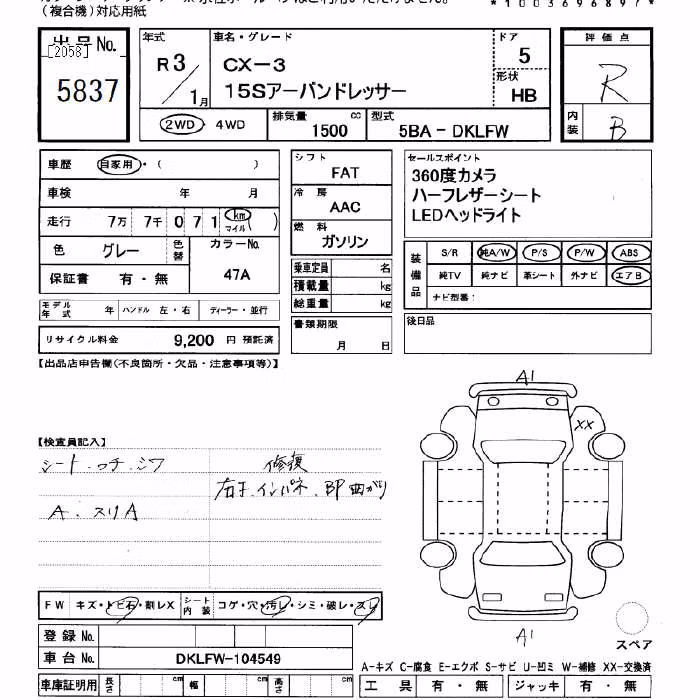 （複合機）対応用紙
*1003696897*
出品No.
[2058]
5837
年式
R 3 / 1月
車名・グレード
CX-3
15Sアーバンドレッサー
ドア
5
形状
HB
評価点
R
内装
B
2WD・4WD
排気量
1500 cc
型式
5BA-DKLFW
車歴 自家用・（ ）
車検 年 月
走行 7万 7千 071 km マイル
色 グレー 色替 カラーNo. 47A
保証書 有・無
モデル年式 年 ハンドル 左・右 ディーラー・並行
リサイクル料金 9,200 円 預託済
シフト
FAT
冷房
AAC
燃料
ガソリン
乗車定員 名
積載量 kg
総重量 kg
書類期限
月 日
セールスポイント
360度カメラ
ハーフレザーシート
LEDヘッドライト
装備品
S/R 純A/W P/S P/W ABS
純TV 純ナビ 革シート 外ナビ エアB
ナビ型番：
後日品
【出品店申告欄（不良箇所・欠品・注意事項等）】
【検査員記入】
シート・ウチ・シワ
A．スリA
修復
右子.インパネ.BP曲がり
A1
XX
A1
スペア
FW キズ・トビ石・割レX シート内装 コゲ・穴・汚レ・シミ・破レ・スレ
登録No.
車台No. DKLFW-104549
車庫証明用 長さ cm 幅 cm 高さ cm
A-キズ C-腐食 E-エクボ S-サビ U-凹ミ W-補修 XX-交換済
工具 有・無 ジャッキ 有・無